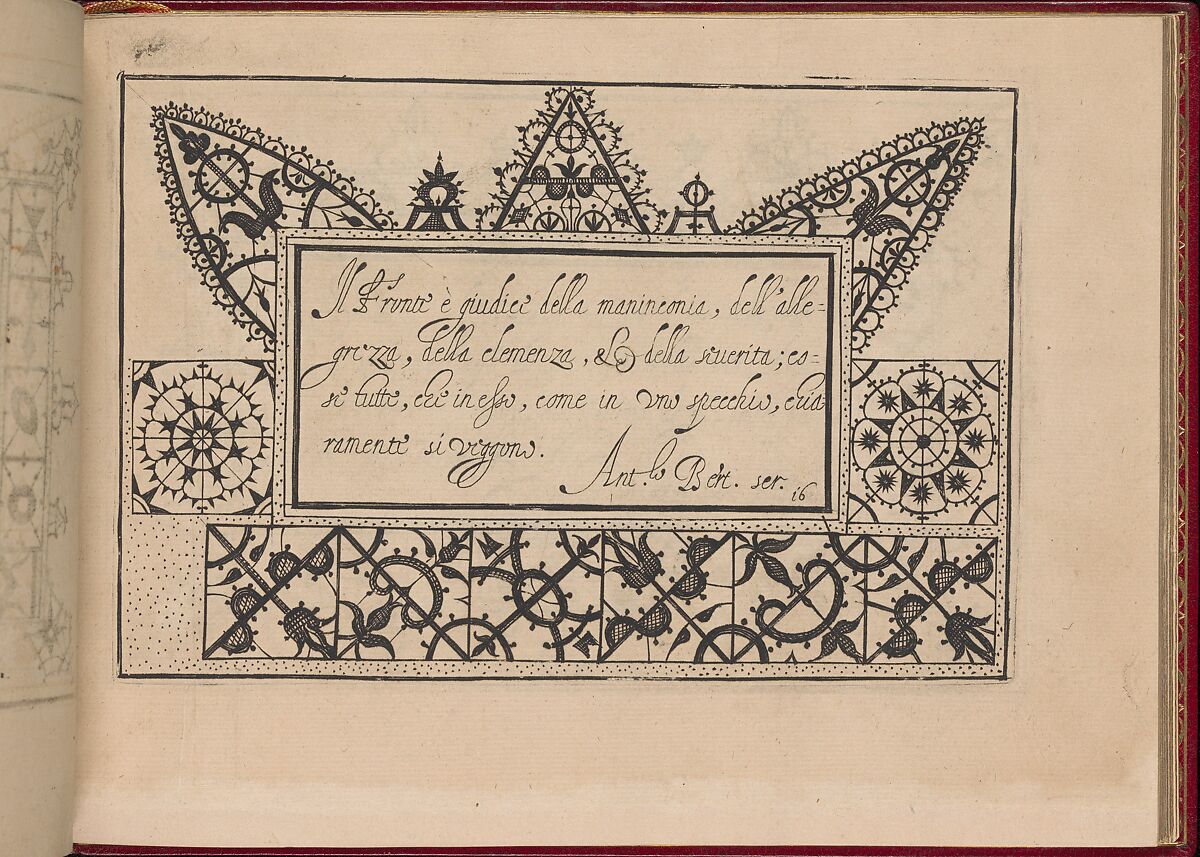 Il Fronte è giudice della maninconia, dell'alle-
grezza, della clemenza, & della severita; co-
se tutte, che in esso, come in uno specchio, chia
ramente si veggono.
Ant.lo Bert. scr. 16